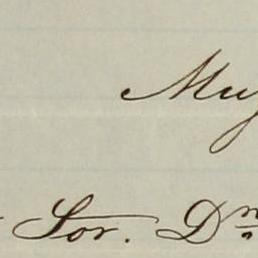 Muy
Sor. Dn